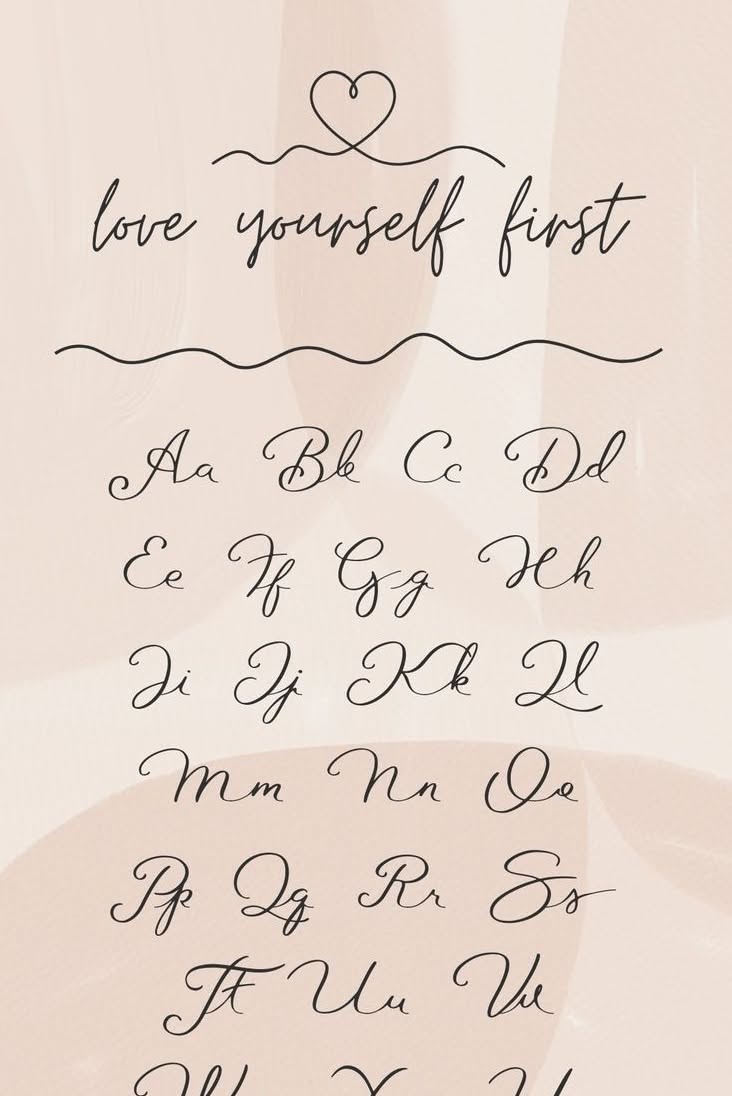 love yourself first
Aa Bb Cc Dd
Ee Ff Gg Hh
Ii Jj Kk Ll
Mm Nn Oo
Pp Qq Rr Ss
Tt Uu Vv
W X Y